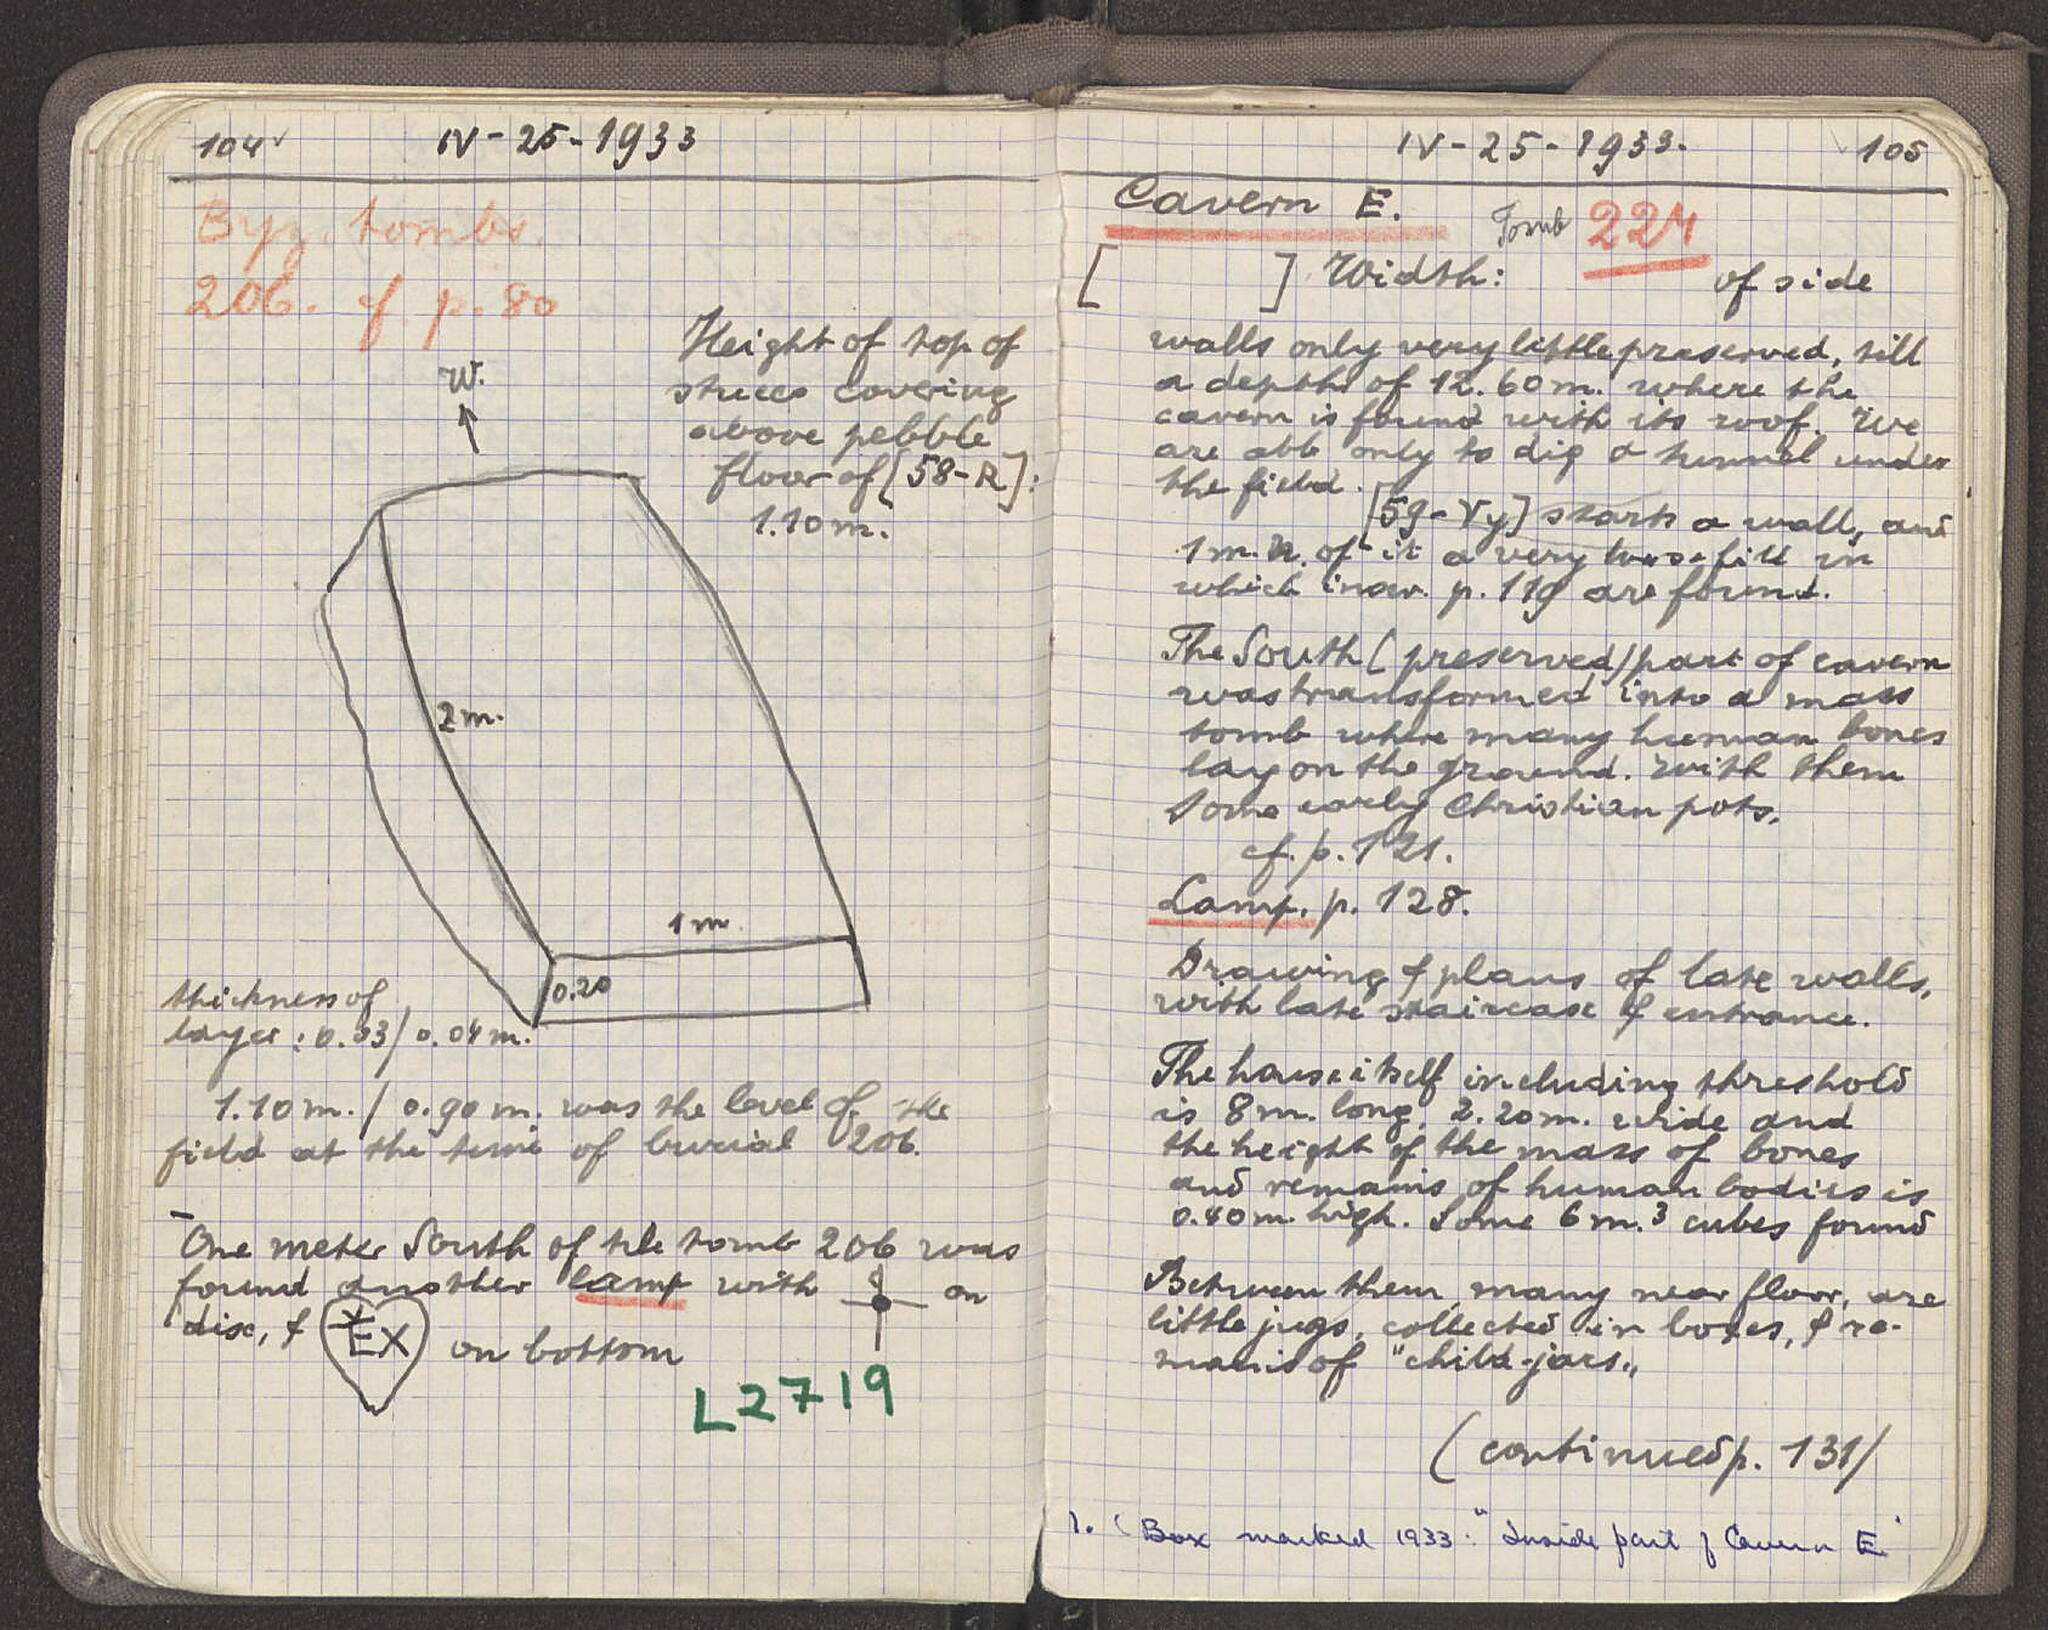 104
IV-25-1933
Byz. tombs.
206. cf. p. 80
W.
Height of top of
stucco covering
above pebble
floor of [58-R]:
1.10 m.
2 m.
1 m
0.20
thickness of
layer: 0.03/0.04 m.
1.10 m. / 0.90 m. was the level of the
field at the time of burial 206.
One meter South of the tomb 206 was
found another lamp with on
disc, & EX on bottom
L2719
IV-25-1933.
105
Cavern E. Tomb 224
[ ] Width: of side
walls only very little preserved, till
a depth of 12.60 m. where the
cavern is found with its roof. We
are able only to dig a tunnel under
the field.
[59-Vy] starts a wall, and
1 m. N. of it a very loose fill in
which inov. p. 119 are found.
The South (preserved) part of cavern
was transformed into a mass
tomb where many human bones
lay on the ground. With them
some early Christian pots.
cf. p. 121.
Lamp. p. 128.
Drawing & plans of late walls,
with late staircase & entrance.
The house itself including threshold
is 8 m. long, 2.20 m. wide and
the height of the mass of bones
and remains of human bodies is
0.40 m. high. Some 6 m.³ cubes found
Between them, many near floor, are
little jugs, collected in boxes, & re-
mains of "child-jars"
(continued p. 131)
1. (Box marked 1933: "Inside part of Cavern E"